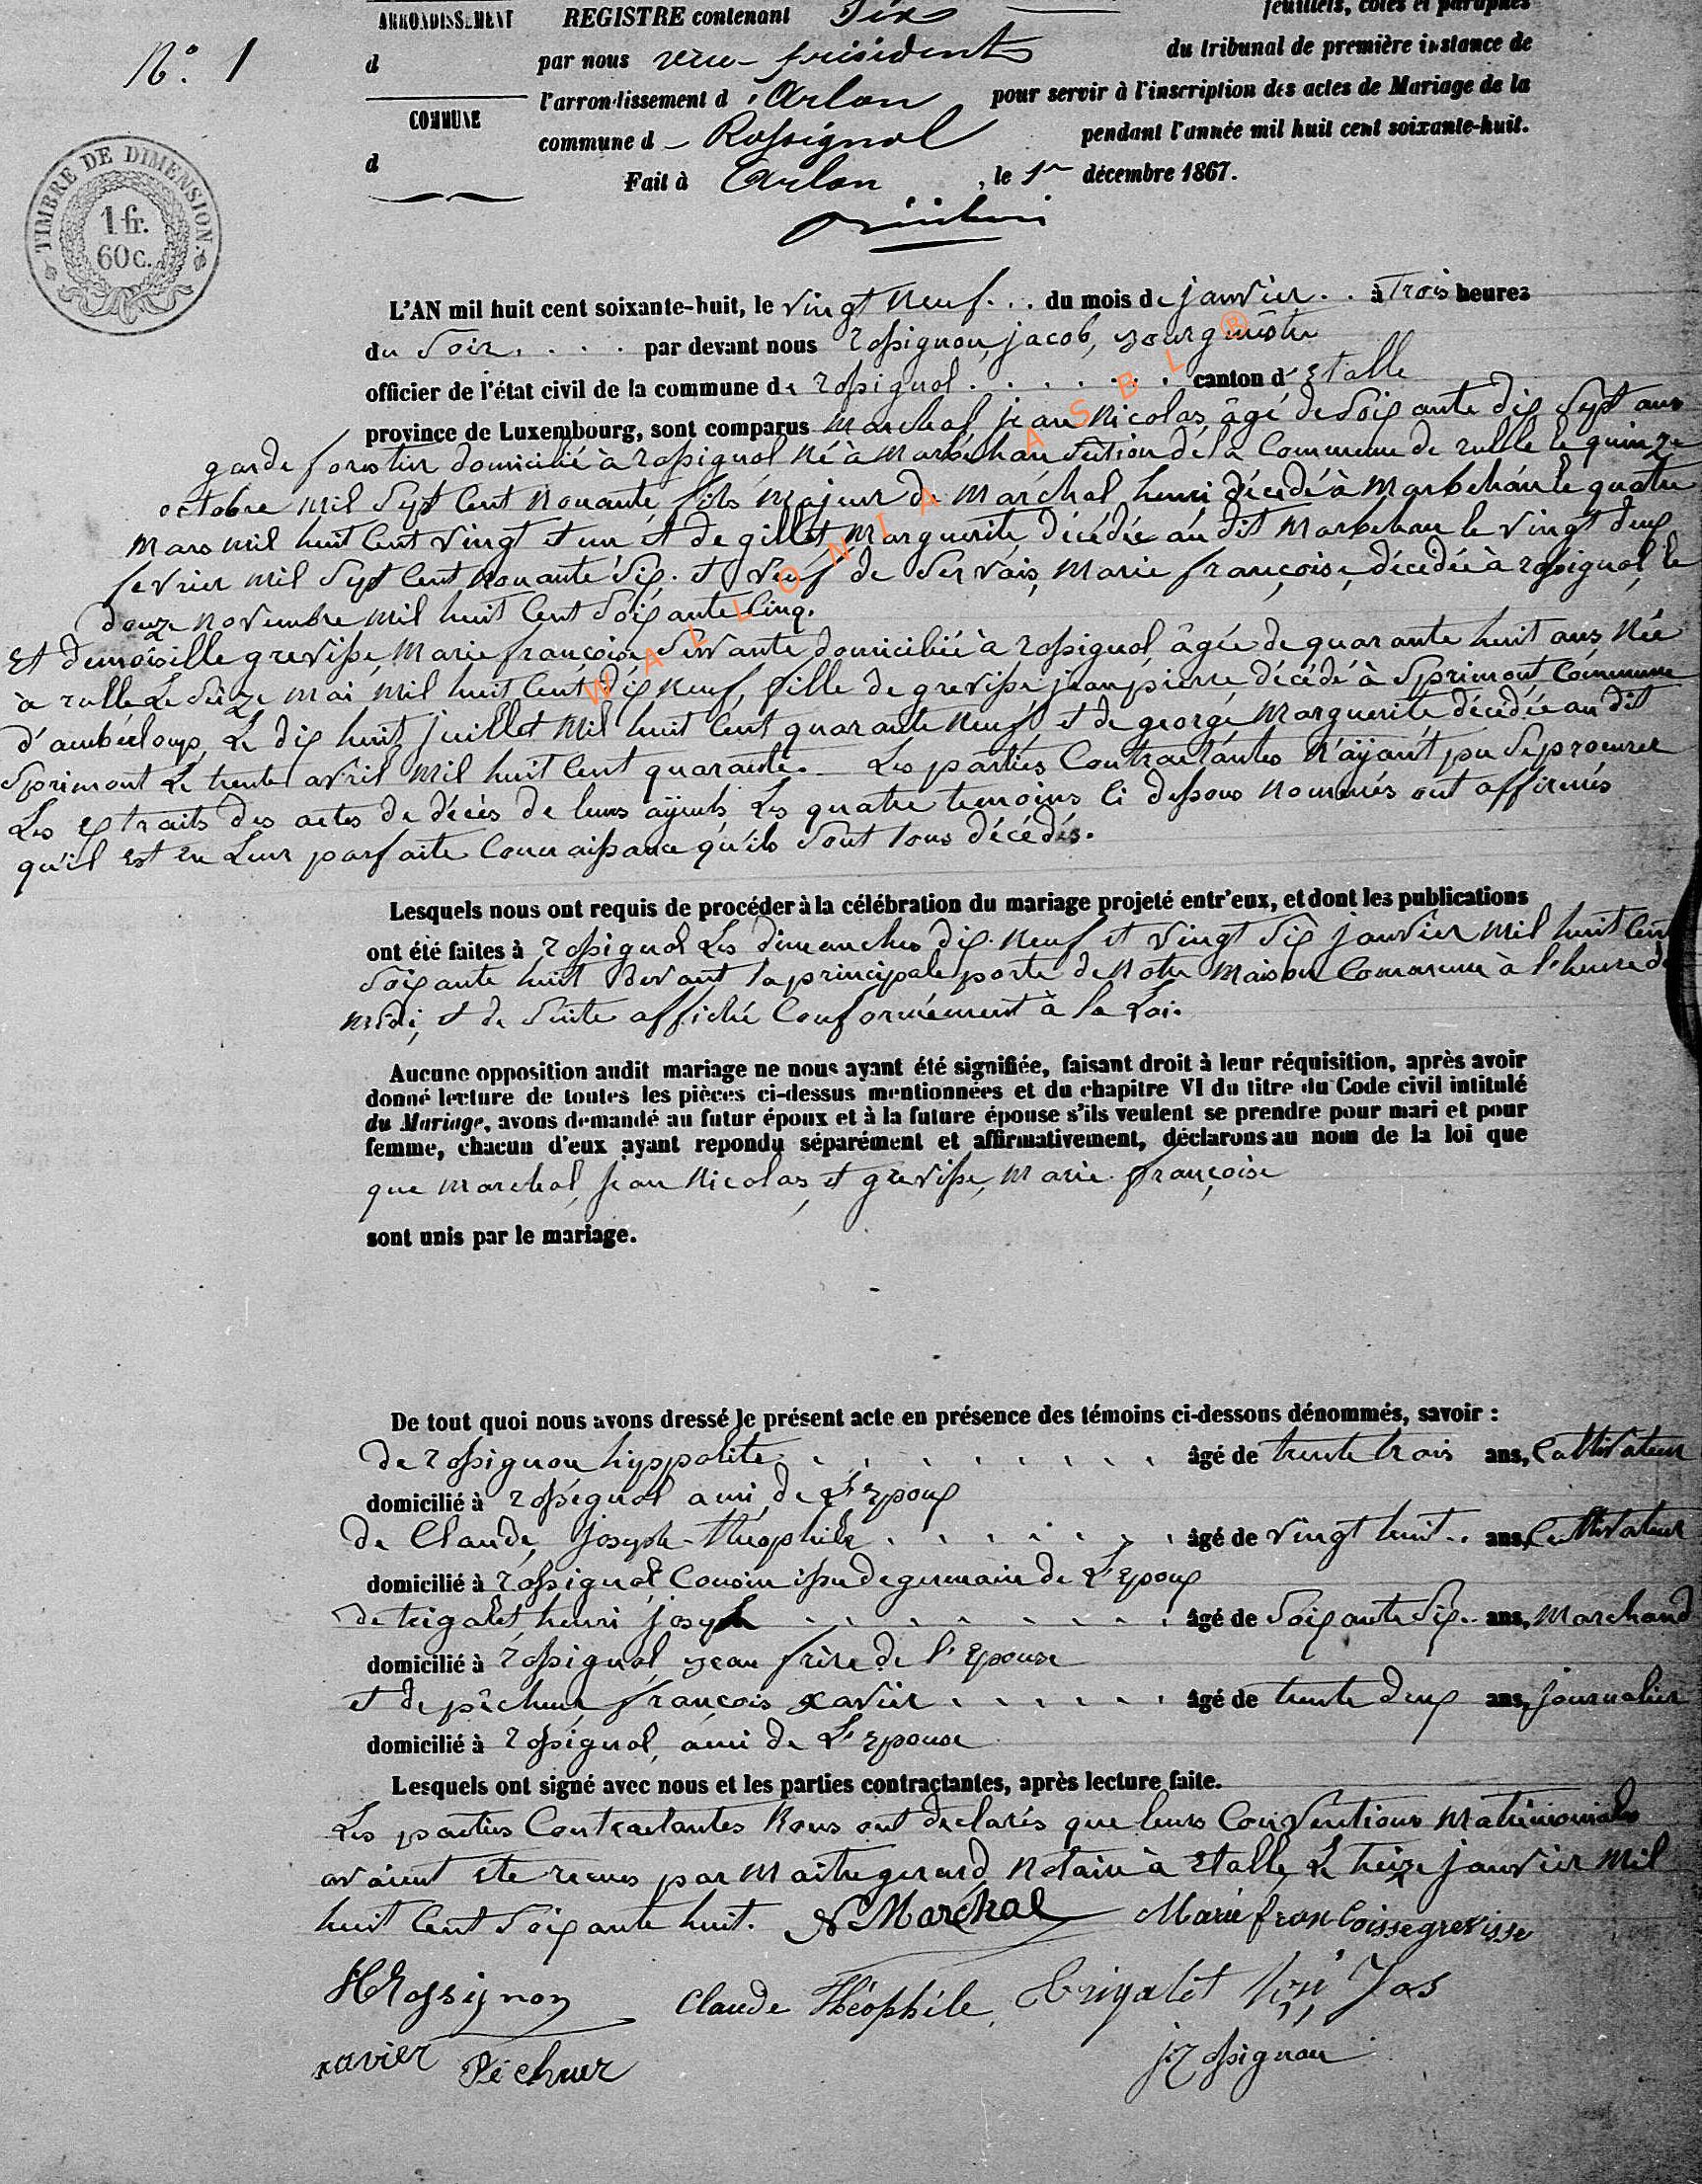 ARRONDISSEMENT REGISTRE contenant Six feuillets, cotés et paraphés
N°. 1
d par nous vice-président du tribunal de première instance de
l'arrondissement d'Arlon pour servir à l'inscription des actes de Mariage de la
COMMUNE
commune d Rossignol pendant l'année mil huit cent soixante-huit.
d Fait à Arlon, le 1er décembre 1867.
TIMBRE DE DIMENSION.
1 fr.
60 c.
L'AN mil huit cent soixante-huit, le vingt neuf . . . du mois de janvier . . à Trois heures
du Soir. . . . . par devant nous rossignon, jacob, bourgmêstre
officier de l'état civil de la commune de rossignol . . . . . . . canton d'Etalle
province de Luxembourg, sont comparus Marchal jean Nicolas, âgé de Soixante dix Sept ans
garde forestier domicilié à rossignol né à Marbehan Section de la Commune de rulle le quinze
octobre mil Sept Cent Nonante, fils Majeur de Maréchal, henri, décédé à Marbehan le quatre
Mars mil huit Cent vingt et un et de gillet, Marguerite décédée au dit Marbehan le vingt deux
fevrier mil Sept Cent Nonante Six. et veuf de Servais, Marie françoise, décédée à rossignol, le
douze novembre mil huit Cent Soixante Cinq.
Et demoiselle grevisse, Marie françoise Servante domiciliée à rossignol, âgée de quarante huit ans, Née
à rulle Le Seize mai mil huit Cent dix Neuf, fille de grevisse jean pierre, décédé à Sprimont Commune
d'amberloup, Le dix huit juillet mil huit Cent quarante Neuf, et de george Marguerite décédée au dit
Sprimont Le trente avril mil huit Cent quarante. Les parties Contractantes N'ayant pu Se procurer
Les Extraits des actes de décès de leurs ayeuls, Les quatre temoins Ci dessous Nommés ont affirmés
qu'il Est En Leur parfaite Connaissance qu'ils Sont tous décédés.
Lesquels nous ont requis de procéder à la célébration du mariage projeté entr'eux, et dont les publications
ont été faites à rossignol Les dimanches dix-Neuf et vingt Six janvier mil huit Cent
Soixante huit devant la principale porte de Notre Maison Commune à l'heure de
Midi, et de Suite affiché Conformément à la Loi.
Aucune opposition audit mariage ne nous ayant été signifiée, faisant droit à leur réquisition, après avoir
donné lecture de toutes les pièces ci-dessus mentionnées et du chapitre VI du titre du Code civil intitulé
du Mariage, avons demandé au futur époux et à la future épouse s'ils veulent se prendre pour mari et pour
femme, chacun d'eux ayant repondu séparément et affirmativement, déclarons au nom de la loi que
que Marchal, jean Nicolas, et grevisse, Marie françoise
sont unis par le mariage.
De tout quoi nous avons dressé le présent acte en présence des témoins ci-dessous dénommés, savoir :
De rossignon hyppolite . . . . . . . . âgé de trente trois ans, Cultivateur
domicilié à rossignol ami de L'Epoux
de Claude, Joseph-théophile . . . . . . âgé de vingt huit . . ans, Cultivateur
domicilié à rossignol Cousin issu de germain de L'Epoux
de trigalet, henri joseph . . . . . . . âgé de Soixante Six . . ans, Marchand
domicilié à rossignol, beau frère de l'Epouse
et de pêcheur, françois xavier . . . . . . âgé de trente deux ans, journalier
domicilié à rossignol, ami de L'Epouse
Lesquels ont signé avec nous et les parties contractantes, après lecture faite.
Les parties Contractantes Nous ont déclarés que leurs Conventions Matrimoniales
avaient été recues par Maitre gerard, Notaire à Etalle, Le treize janvier Mil
huit Cent Soixante huit. N Maréchal Marie francoisse grevisse
H Rossignon Claude Théophile, Trigalet Hri Jos
xavier Pécheur J Rossignon
WALLONIA ASBL ®